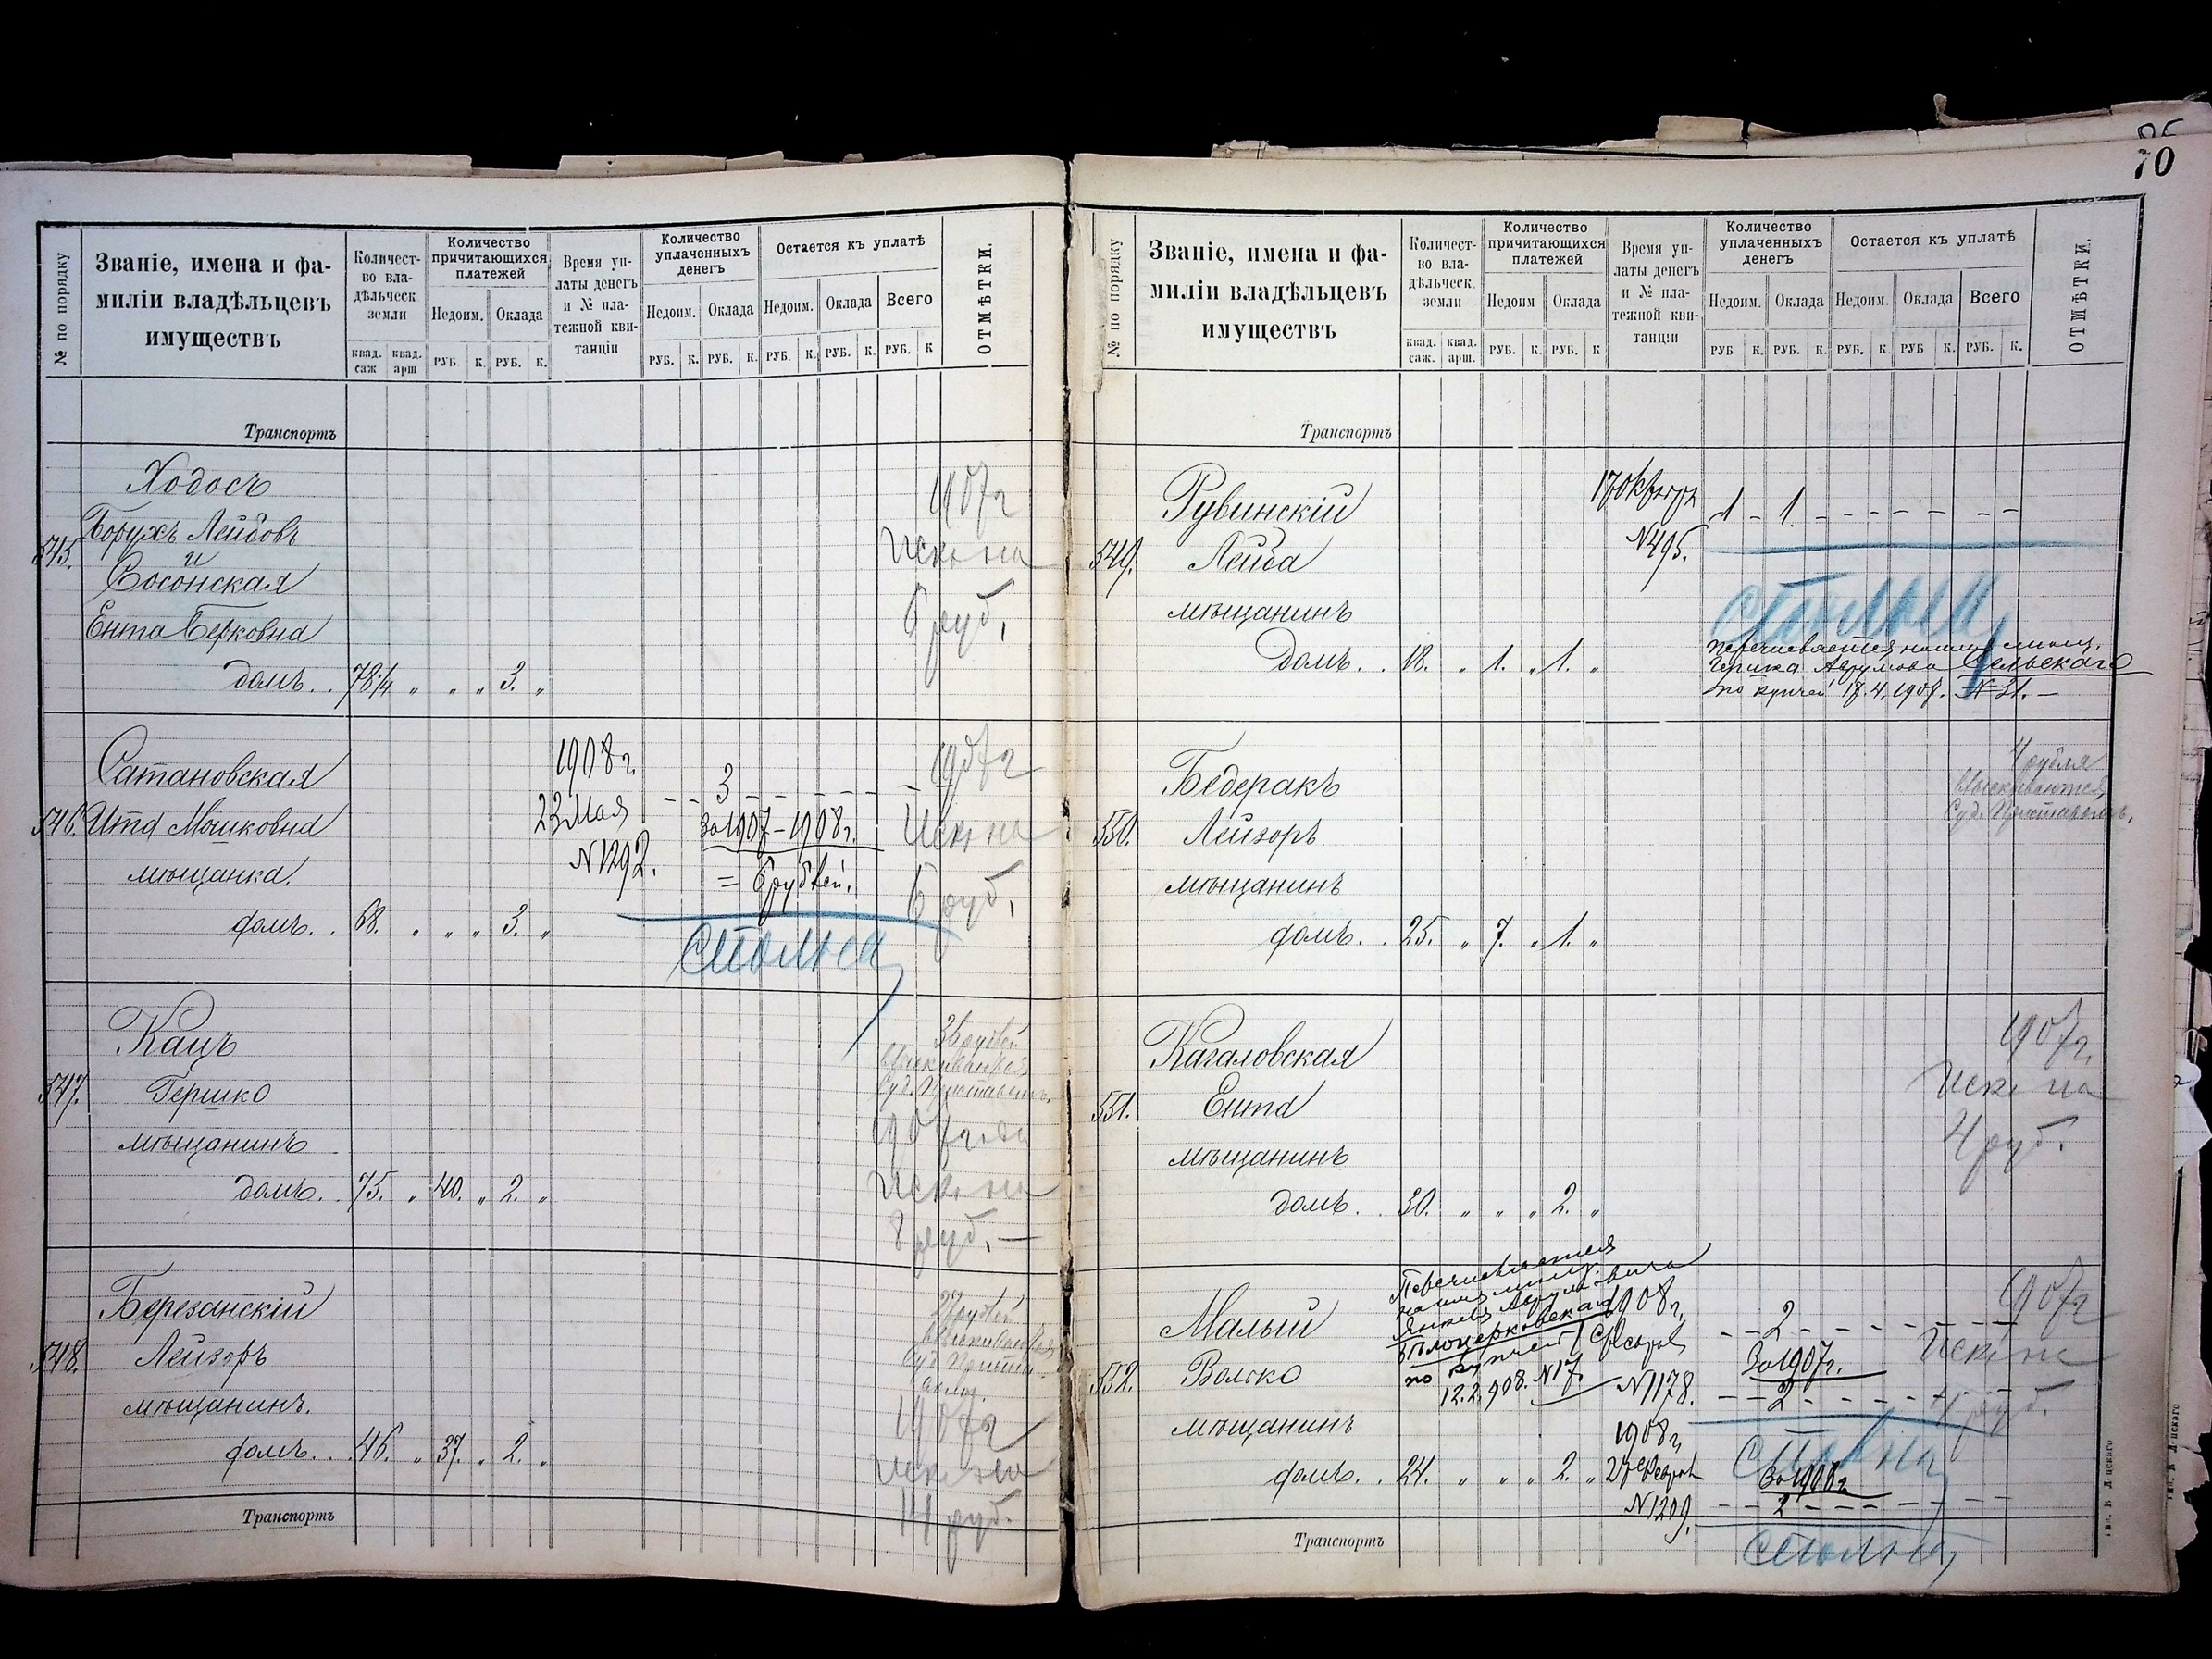 70
№ по порядку
Званіе, имена и фа-
миліи владѣльцевъ
имуществъ
Количест-
во вла-
дѣльческ
земли
квад. саж
квад. арш
Количество
причитающихся
платежей
Недоим.
Оклада
РУБ К. РУБ. К.
Время уп-
латы денегъ
и № пла-
тежной кви-
танціи
Количество
уплаченныхъ
денегъ
Недоим. Оклада
РУБ. К. РУБ. К.
Остается къ уплатѣ
Недоим. Оклада Всего
РУБ. К. РУБ. К. РУБ. К
ОТМѢТКИ.
Транспортъ
545.
Ходосъ
Борухъ Лейбовъ
и
Сосонская
Ента Берковна
домъ. . 78¼ „ „ „ 3. „
1907 г
Иск. на
6 руб.
546.
Сатановская
Ита Мошковна
мѣщанка.
домъ. . 68. „ „ „ 3. „
1908 г.
23 Мая
N 1292.
3
За 1907-1908 г.
= 6 рублей.
1907 г
Иск. на
6 руб.
547.
Кацъ
Гершко
мѣщанинъ
домъ. . 75. „ 40. „ 2. „
рублей
Суд. Приставомъ.
Иск. на
8 руб. —
548.
Березанскій
Лейзоръ
мѣщанинъ.
домъ. . . 46. „ 37. „ 2. „
рублей
1907 г
Иск. на
руб.
Транспортъ
№ по порядку
Званіе, имена и фа-
миліи владѣльцевъ
имуществъ
Количест-
во вла-
дѣльческ.
земли
квад. саж.
квад. арш.
Количество
причитающихся
платежей
Недоим Оклада
РУБ. К. РУБ. К
Время уп-
латы денегъ
и № пла-
тежной кви-
танціи
Количество
уплаченныхъ
денегъ
Недоим. Оклада
РУБ К. РУБ. К.
Остается къ уплатѣ
Недоим. Оклада Всего
РУБ. К. РУБ К. РУБ. К.
ОТМѢТКИ.
Транспортъ
549.
Рувинскій
Лейба
мѣщанинъ
домъ. . 18. „ 1. „ 1. „
17 Октября
N 495.
1 - 1 - - - - - - -
Перечисляется на имя мѣщ.
Гершка Аврумова Сельскаго
по купчей 17.4.1907. N 31. —
550.
Бедеракъ
Лейзоръ
мѣщанинъ
домъ. . 25. „ 7. „ 1. „
4 рубля
взыскиваются
Суд. Приставомъ.
551.
Кагаловская
Ента
мѣщанинъ
домъ. . 30. „ „ „ 2. „
1907 г.
Иск. на
4 руб.
552.
Малый
Волько
мѣщанинъ
домъ. . 24. „ „ „ 2. „
Перечисляется
на имя мѣщ.
Янкеля Аврумовича
Бѣлоцерковскаго
по купчей
12.2.908. N 17.
1908 г.
N 1178.
2
За 1907 г.
2
1907 г
Иск. на
4 руб.
1908 г.
N 1209.
За 1908 г
2
Транспортъ